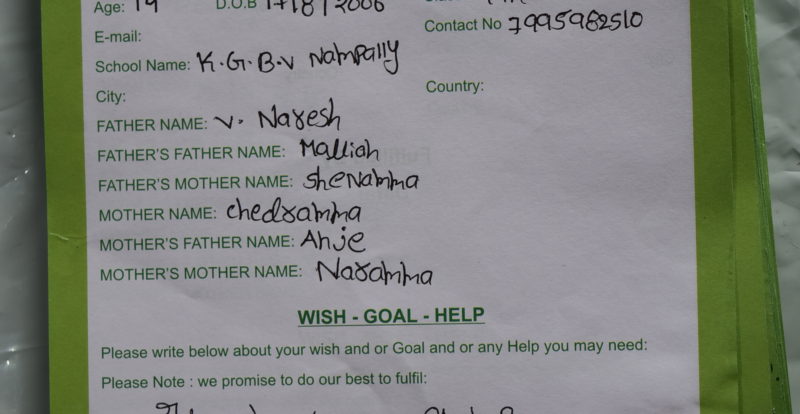 Age: 14 D.O.B 17/8/2006
Contact No 7995982510
E-mail:
School Name: K.G.B.V Nampally
City: Country:
FATHER NAME: V. Naresh
FATHER'S FATHER NAME: Malliah
FATHER'S MOTHER NAME: shenamma
MOTHER NAME: chedramma
MOTHER'S FATHER NAME: Anje
MOTHER'S MOTHER NAME: Naramma
WISH - GOAL - HELP
Please write below about your wish and or Goal and or any Help you may need:
Please Note : we promise to do our best to fulfil: